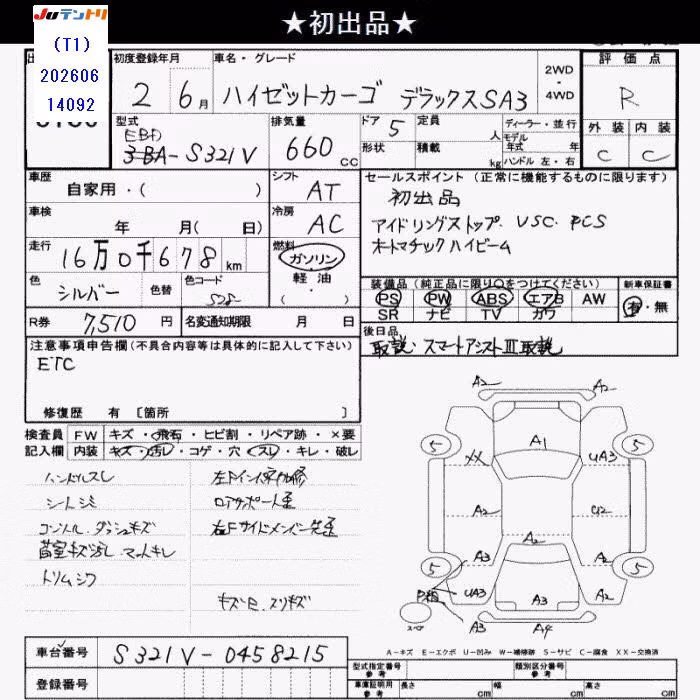 ★初出品★
JUテントリ
(T1)
202606
14092
初度登録年月
2 6月
車名・グレード
ハイゼットカーゴ デラックスSA3
2WD
4WD
評価点
R
型式
EBD
3BA-S321V
排気量
660cc
ドア 5
定員 人
形状
積載 kg
ディーラー・並行
モデル
年式 年
ハンドル 左・右
外装 内装
C C
車歴
自家用・( )
シフト
AT
セールスポイント (正常に機能するものに限ります)
初出品
アイドリングストップ. VSC. PCS
オートマチックハイビーム
車検
年 月( 日)
冷房
AC
走行
16万0千678km
燃料
ガソリン
軽油
( ・ )
色
シルバー
色替
色コード
S28
装備品 (純正品に限り○をつけてください)
PS PW ABS エアB AW
SR ナビ TV カワ
新車保証書
有・無
R券
7,510円
名変通知期限 月 日
後日品
取説・スマートアシストⅢ取説
注意事項申告欄(不具合内容等は具体的に記入して下さい)
ETC
修復歴 有 〔箇所 〕
検査員
記入欄
FW キズ・飛石・ヒビ割・リペア跡・×要
内装 キズ・汚レ・コゲ・穴・スレ・キレ・破レ
ハンドルスレ
シートシミ
ダッシュキズ
荷室キズ汚レ マットキレ
トリムシワ
左Fインパネ
ロアサポート歪
右Fサイドメンバー先歪
スリキズ
A2 A2
5 A1 5
XX UA3
A2 A2 U2
A3 A2
5 5
UA3 A3 A2
スペア A3 A4
A-キズ E-エクボ U-凹み W-補修跡 S-サビ C-腐食 XX-交換済
車台番号 S321V-0458215
登録番号
型式指定番号
参考
類別区分番号
参考
車庫証明用
参考
長さ cm 幅 cm 高さ cm